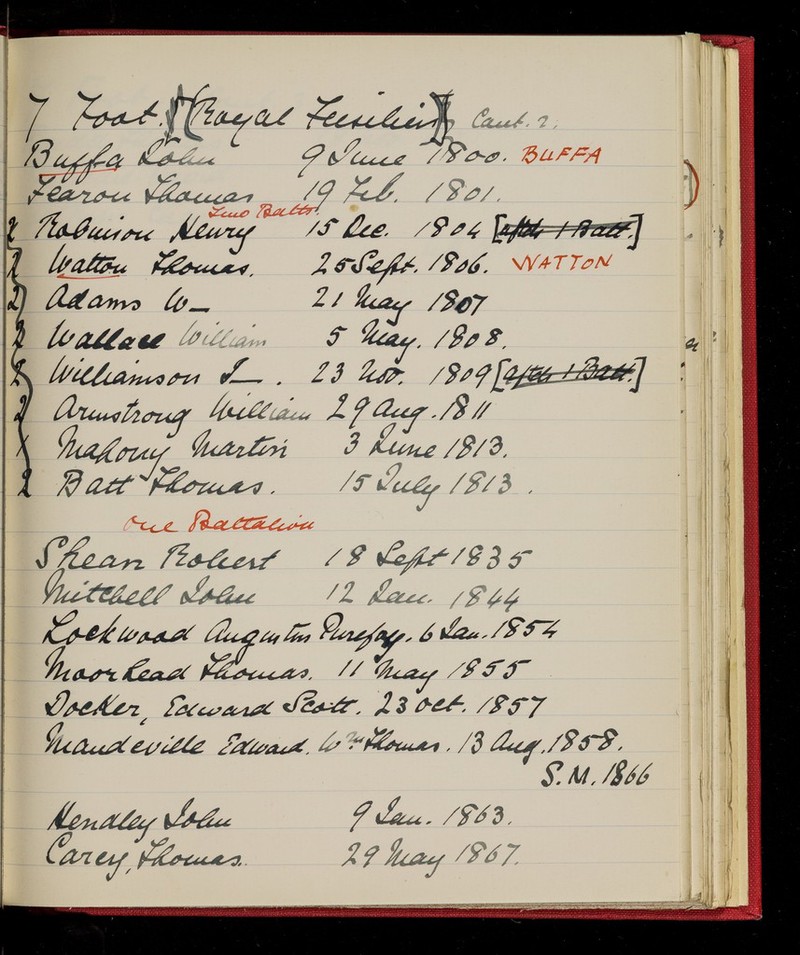 7 Foot. [(Royal Fusiliers)] Cont. 2.
Buffa John 9 June 1800. BUFFA
Fearon Thomas 19 Feb. 1801.
Two Batts.
2 Robinson Henry 15 Dec. 1804 [after 1 Batt.]
2 Watton Thomas. 25 Sept. 1806. WATTON
2 Adams W— 21 May 1807
2 Wallace William 5 May. 1808.
2 Williamson J—. 23 Nov. 1809 [after 1 Batt.]
2 Armstrong William 29 Aug. 1811
1 Mahony Martin 3 June 1813.
2 Batt Thomas. 15 July 1813.
One Battalion
Shean Robert 18 Sept 1835
Mitchell John 12 Jan. 1844
Lockwood Augustus Purefoy. 6 Jan. 1854
Moorhead Thomas. 11 May 1855
Docker, Edward Scott. 23 Oct. 1857
Mandeville Edward. Wm Thomas. 13 Aug. 1858.
S.M. 1866
Hendley John 9 Jan. 1863.
Carey, Thomas. 29 May 1867.